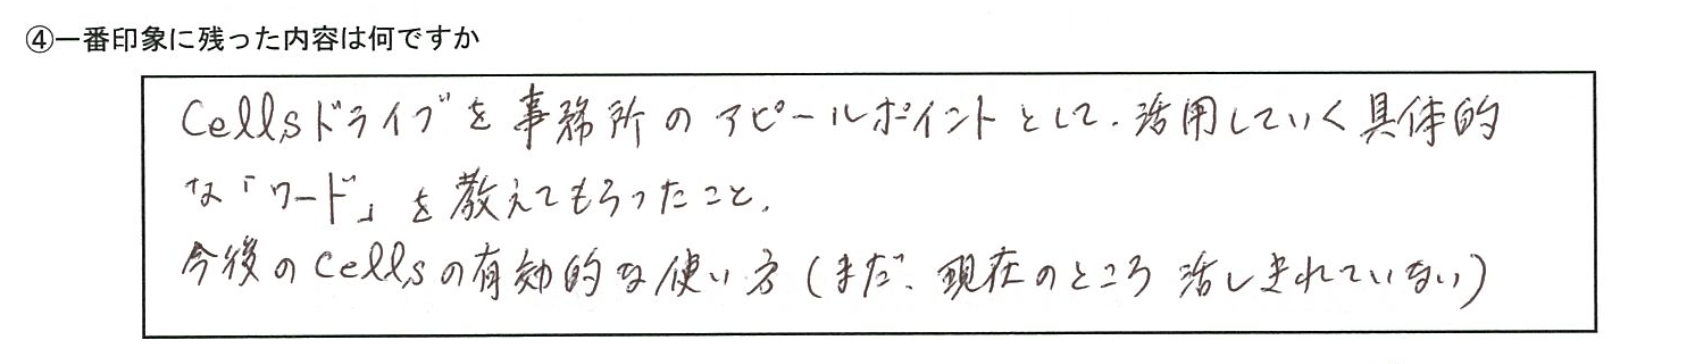 ④一番印象に残った内容は何ですか
Cellsドライブを事務所のアピールポイントとして、活用していく具体的
な「ワード」を教えてもらったこと。
今後のCellsの有効的な使い方（まだ、現在のところ活しきれていない）